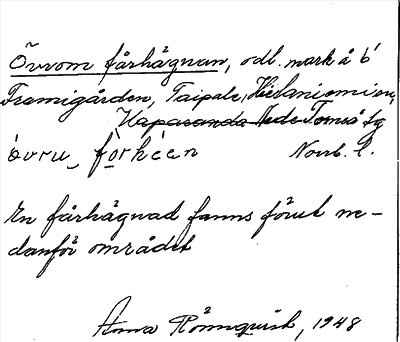 Övvom fårhågnan, odl. mark å b
Framigården, Taipale, Hietaniemi sn,
Haparanda Nede Torneå sg
óvru fȯrhéen Norrb. l.
En fårhägnad fanns förut ne-
danför området
Anna Rönnquist, 1948